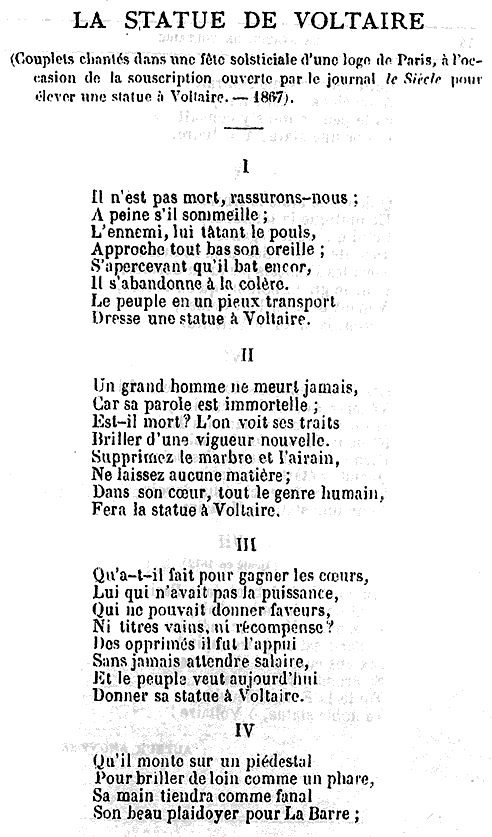 LA STATUE DE VOLTAIRE
(Couplets chantés dans une fête solsticiale d'une loge de Paris, à l'oc-
casion de la souscription ouverte par le journal le Siècle pour
élever une statue à Voltaire. — 1867).
I
Il n'est pas mort, rassurons-nous ;
A peine s'il sommeille ;
L'ennemi, lui tâtant le pouls,
Approche tout bas son oreille ;
S'apercevant qu'il bat encor,
Il s'abandonne à la colère.
Le peuple en un pieux transport
Dresse une statue à Voltaire.
II
Un grand homme ne meurt jamais,
Car sa parole est immortelle ;
Est-il mort ? L'on voit ses traits
Briller d'une vigueur nouvelle.
Supprimez le marbre et l'airain,
Ne laissez aucune matière ;
Dans son cœur, tout le genre humain,
Fera la statue à Voltaire.
III
Qu'a-t-il fait pour gagner les cœurs,
Lui qui n'avait pas la puissance,
Qui ne pouvait donner faveurs,
Ni titres vains, ni récompense ?
Des opprimés il fut l'appui
Sans jamais attendre salaire,
Et le peuple veut aujourd'hui
Donner sa statue à Voltaire.
IV
Qu'il monte sur un piédestal
Pour briller de loin comme un phare,
Sa main tiendra comme fanal
Son beau plaidoyer pour La Barre ;